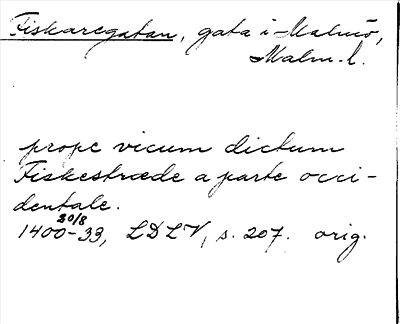 Fiskaregatan, gata i Malmö,
Malm. l.
prope vicum dictum
Fiskestræde a parte occi-
dentale.
30/8
1400-33, LDLV, s. 207. orig.